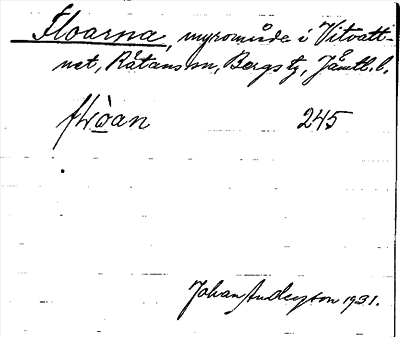 Floarna, myrområde i Vitvatt-
net, Rätans sn, Bergs tg, Jämtl. l.
245
Johan Anderson 1931.